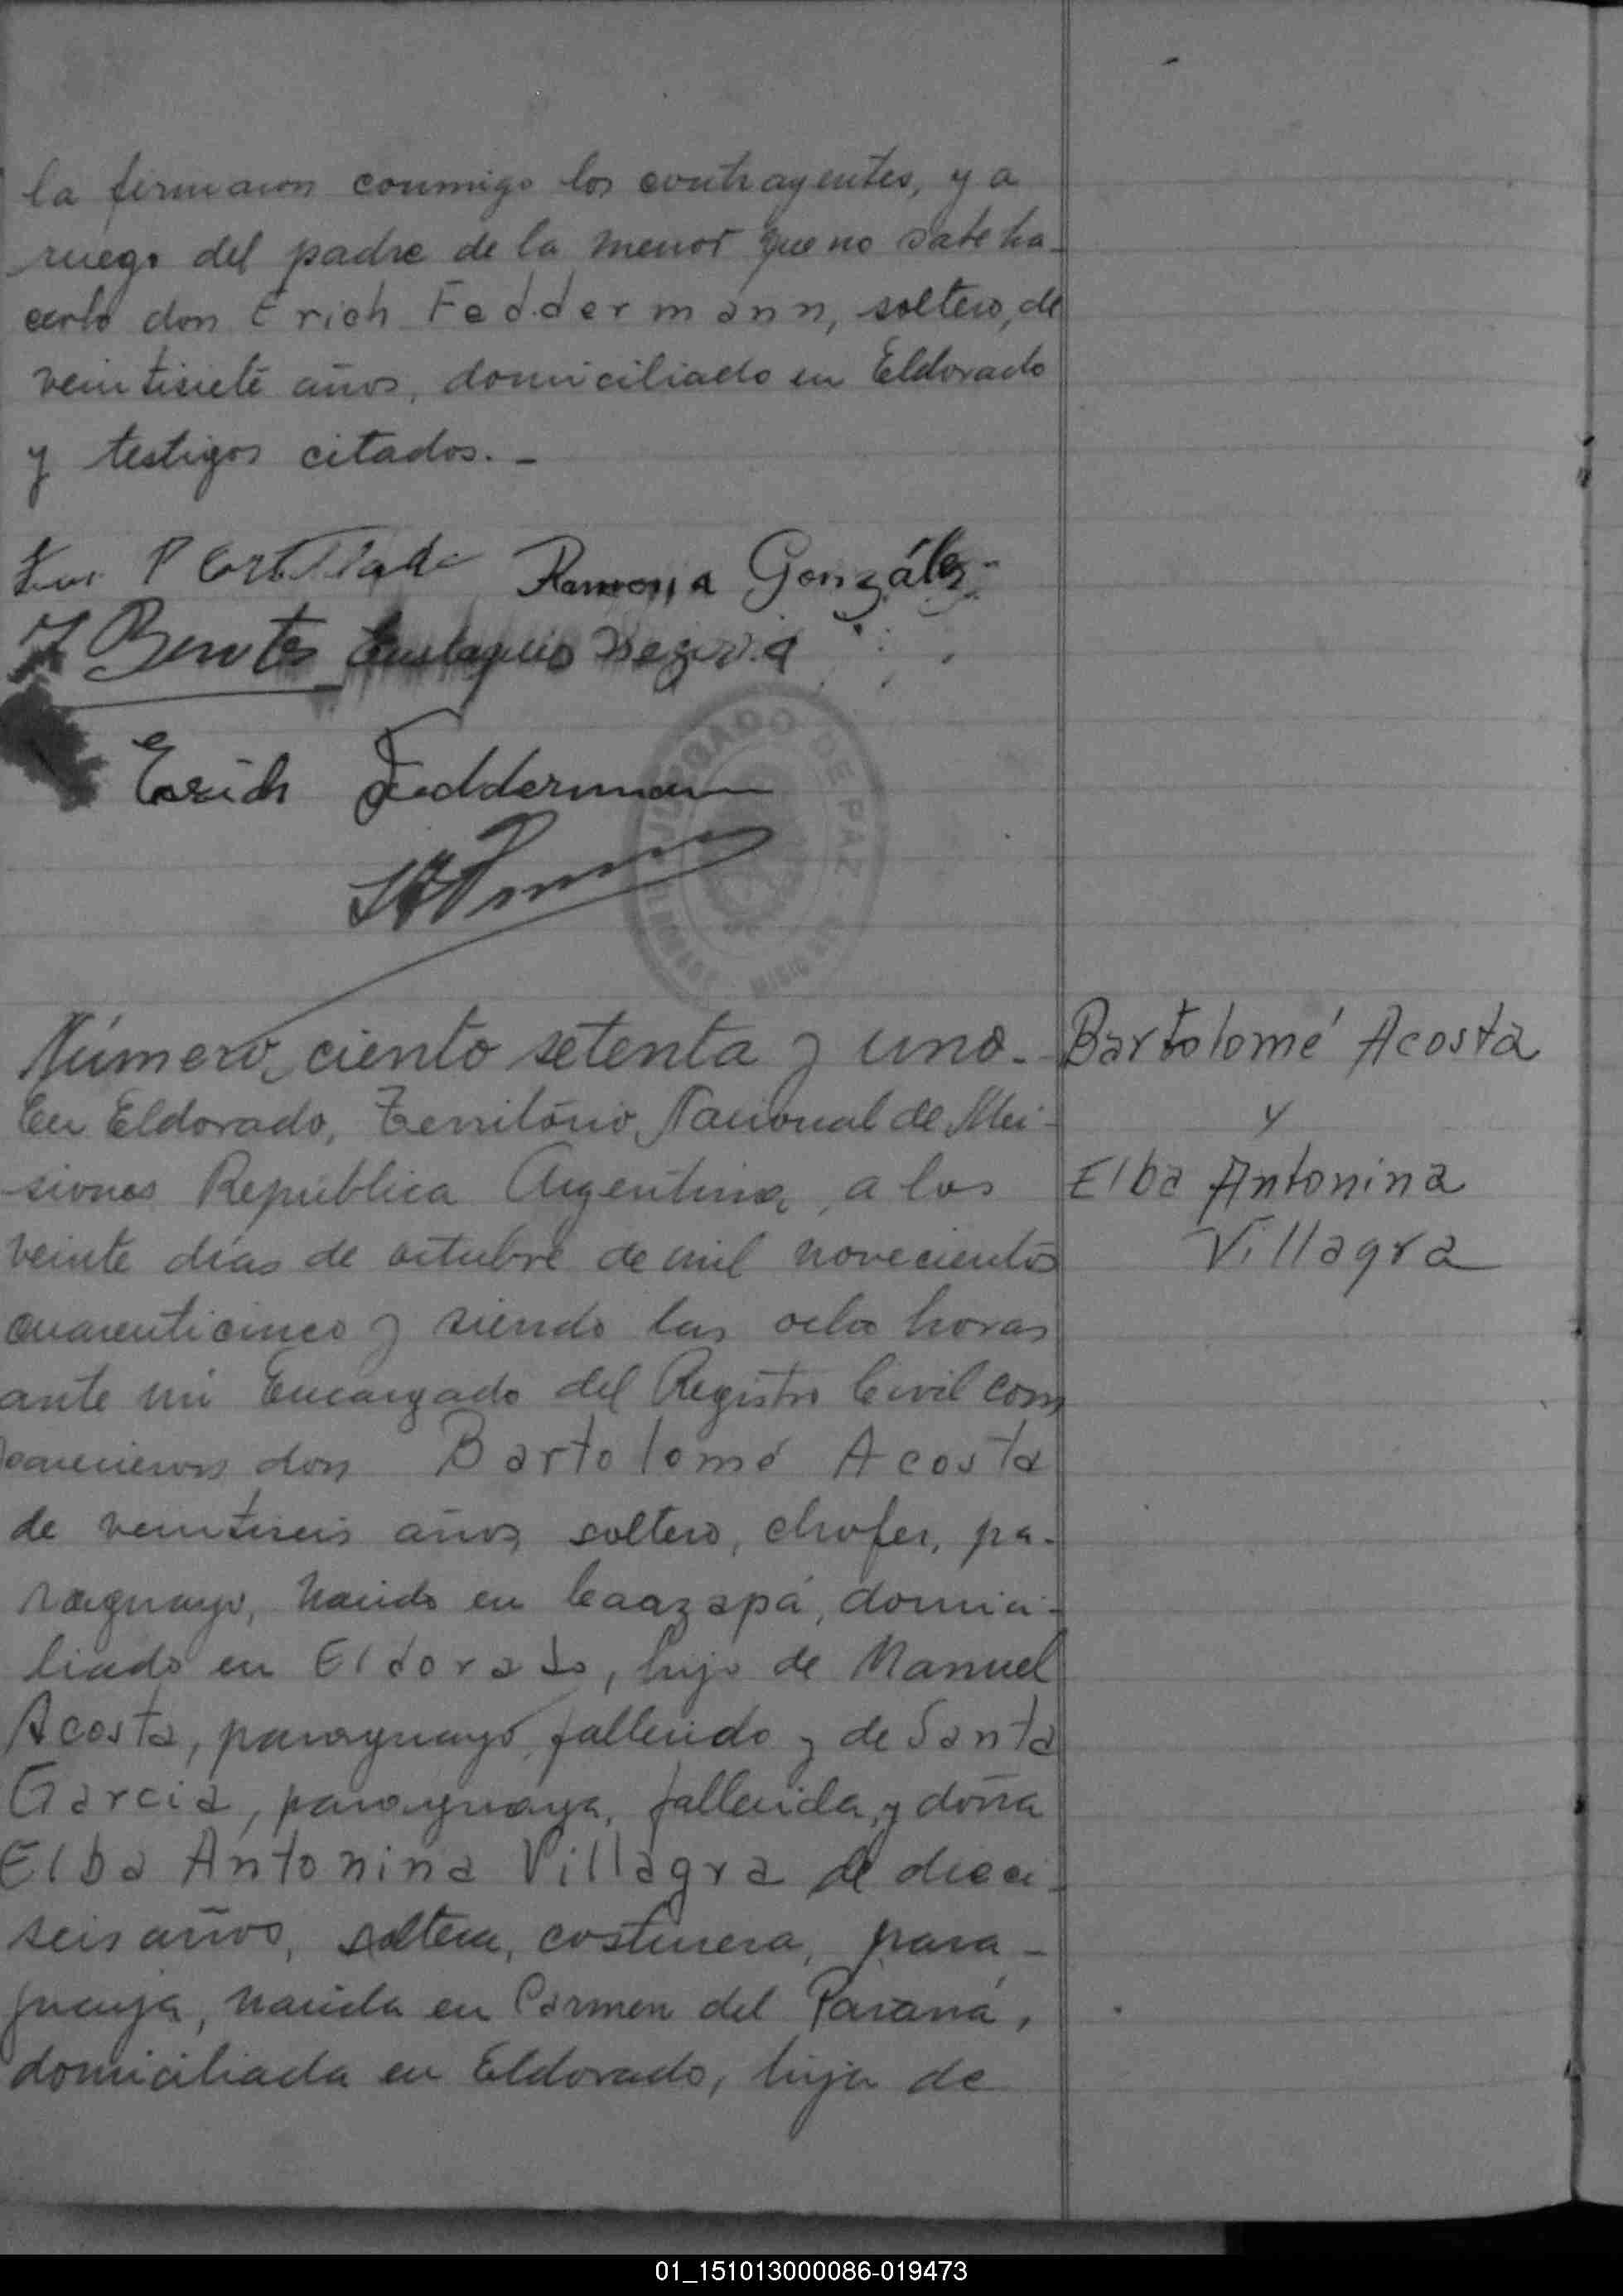 la firmaron conmigo los contrayentes, y a
ruego del padre de la menor que no sabe ha-
cerlo don Erich Feddermann, soltero, de
veintisiete años, domiciliado en Eldorado
y testigos citados. -
Ramona González
Benites Eustaquio Segovia
Erich Feddermann
JUZGADO DE PAZ
Número ciento setenta y uno. -
Bartolomé Acosta
y
Elba Antonina
Villagra
En Eldorado, Territorio Nacional de Mi-
siones República Argentina, a los
veinte días de octubre de mil novecientos
cuarenticinco y siendo las ocho horas
ante mi Encargado del Registro Civil com
parecieron don Bartolomé Acosta
de veintiseis años soltero, chofer, pa-
raguayo, nacido en Caazapá, domici-
liado en Eldorado, hijo de Manuel
Acosta, paraguayo, fallecido y de Santa
Garcia, paraguaya, fallecida, y doña
Elba Antonina Villagra de dieci-
seis años, soltera, costurera, para-
guaya, nacida en Carmen del Paraná,
domiciliada en Eldorado, hija de
01_151013000086-019473